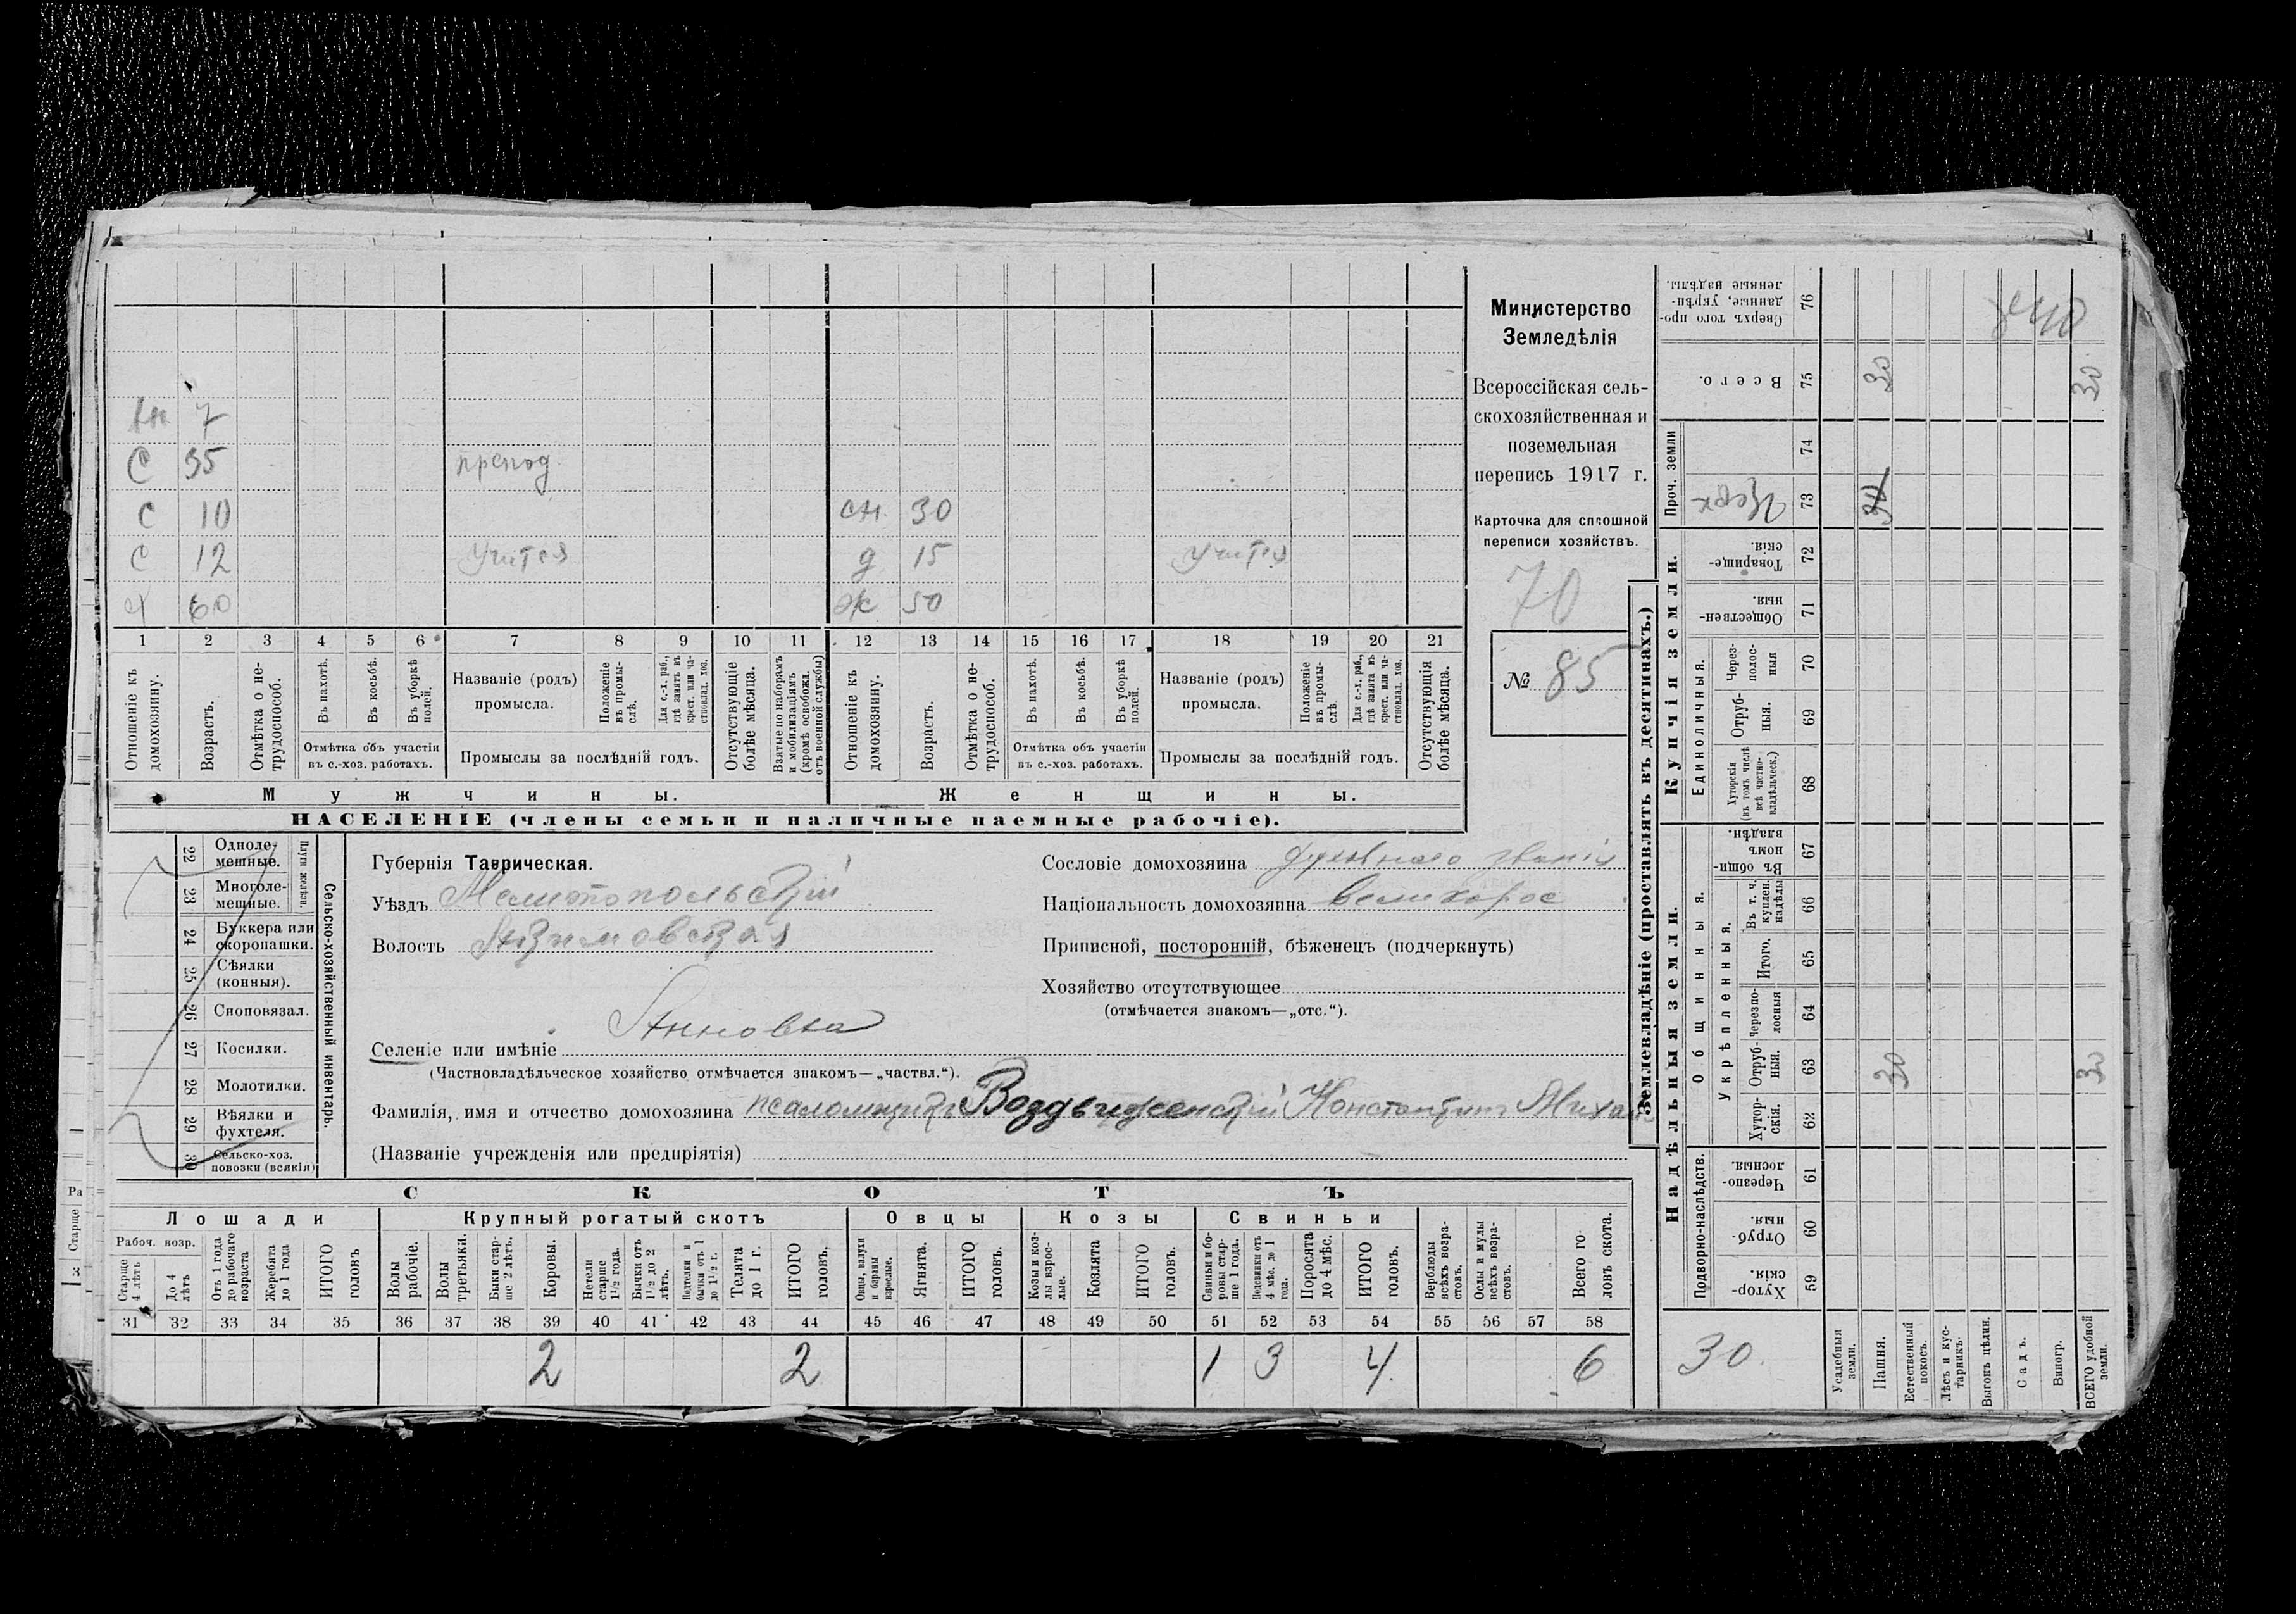 вн. 7
С 35 препод.
С 10 сн. 30
С 12 учится д 15 учится
х 60 ж. 50
1 2 3 4 5 6 7 8 9 10 11 12 13 14 15 16 17 18 19 20 21
Отношеніе къ домохозяину.
Возрастъ.
Отмѣтка о нетрудоспособ.
Въ пахотѣ.
Въ косьбѣ.
Въ уборкѣ полей.
Отмѣтка объ участіи
въ с.-хоз. работахъ.
Названіе (родъ)
промысла.
Положеніе въ промыслѣ.
Для с.-х. раб., гдѣ занятъ въ крест. или частновлад. хоз.
Промыслы за послѣдній годъ.
Отсутствующіе болѣе мѣсяца.
Взятые по наборамъ и мобилизаціямъ (кромѣ освобожд. отъ военной службы)
Отношеніе къ домохозяину.
Возрастъ.
Отмѣтка о нетрудоспособ.
Въ пахотѣ.
Въ косьбѣ.
Въ уборкѣ полей.
Отмѣтка объ участіи
въ с.-хоз. работахъ.
Названіе (родъ)
промысла.
Положеніе въ промыслѣ.
Для с.-х. раб., гдѣ занята въ крест. или частновлад. хоз.
Промыслы за послѣдній годъ.
Отсутствующія болѣе мѣсяца.
Мужчины.
Женщины.
НАСЕЛЕНІЕ (члены семьи и наличные наемные рабочіе).
Министерство
Земледѣлія
Всероссійская сель-
скохозяйственная и
поземельная
перепись 1917 г.
Карточка для сплошной
переписи хозяйствъ.
70
№ 85
22 Одноле-
мешные.
23 Многоле-
мешные.
Плуги желѣзн.
24 Буккера или
скоропашки.
25 Сѣялки
(конныя).
26 Сноповязал.
27 Косилки.
28 Молотилки.
29 Вѣялки и
фухтеля.
30 Сельско-хоз.
повозки (всякія)
Сельско-хозяйственный инвентарь.
Губернія Таврическая.
Уѣздъ Мелитопольскій
Волость Акимовская
Селеніе или имѣніе Анновка
(Частновладѣльческое хозяйство отмѣчается знакомъ—„частвл.“).
Фамилія, имя и отчество домохозяина псаломщикъ Воздвиженскій Константинъ Михаил
(Названіе учрежденія или предпріятія)
Сословіе домохозяина духовнаго званія
Національность домохозяина великорос
Приписной, посторонній, бѣженецъ (подчеркнуть)
Хозяйство отсутствующее
(отмѣчается знакомъ—„отс.“).
СКОТЪ
Лошади
Рабоч. возр.
Старше 4 лѣтъ
До 4 лѣтъ
Отъ 1 года до рабочаго возраста
Жеребята до 1 года
ИТОГО головъ
Крупный рогатый скотъ
Волы рабочіе.
Волы третьяки.
Быки старше 2 лѣтъ.
Коровы.
Нетели старше 1½ года.
Бычки отъ 1½ до 2 лѣтъ.
Подтелки и бычки отъ 1 до 1½ г.
Телята до 1 г.
ИТОГО головъ.
Овцы
Овцы, валухи и бараны взрослые.
Ягнята.
ИТОГО головъ.
Козы
Козы и козлы взрослые.
Козлята
ИТОГО головъ.
Свиньи
Свиньи и боровы старше 1 года.
Подсвинки отъ 4 мѣс. до 1 года.
Поросята до 4 мѣс.
ИТОГО головъ.
Верблюды всѣхъ возрастовъ.
Ослы и мулы всѣхъ возрастовъ.
Всего головъ скота.
31 32 33 34 35 36 37 38 39 40 41 42 43 44 45 46 47 48 49 50 51 52 53 54 55 56 57 58
2 2 1 3 4 6
Землевладѣніе (проставлять въ десятинахъ.)
Купчія земли.
Надѣльныя земли.
Сверхъ того проданные, укрѣпленные надѣлы. 76
Всего. 75 30 30
Проч. земли
74
Церк 73
Товарищескія. 72
Общественныя. 71
Единоличныя.
Черезполосныя 70
Отрубныя. 69
Хуторскія (въ томъ числѣ всѣ частновладѣльческ.) 68
Общинныя.
Въ общинномъ владѣн. 67
Укрѣпленныя.
Въ т. ч. куплен. надѣлы 66
Итого. 65
Черезполосныя 64
Отрубныя. 63 30 30
Хуторскія. 62
Подворно-наслѣдств.
Черезполосныя. 61
Отрубныя. 60
Хуторскія. 59
30
Усадебныя земли.
Пашня.
Естественный покосъ.
Лѣсъ и кустарникъ.
Выгонъ цѣлин.
Садъ.
Виногр.
ВСЕГО удобной земли.
Ра
Старше